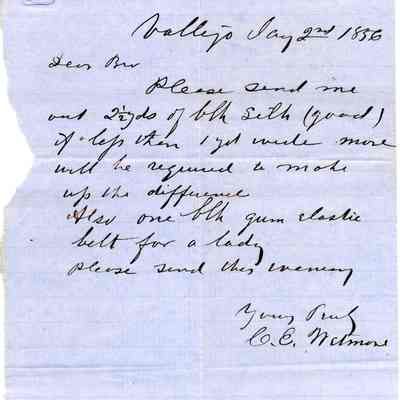 Vallejo Jany 2nd 1856
Dear Bro
Please send me
out 2½ yds of blk Silk (good)
if less than 1 yd wide more
will be required to make
up the difference
Also one blk gum elastic
belt for a lady
please send this evening
Yours Truly
C. E. Wetmore